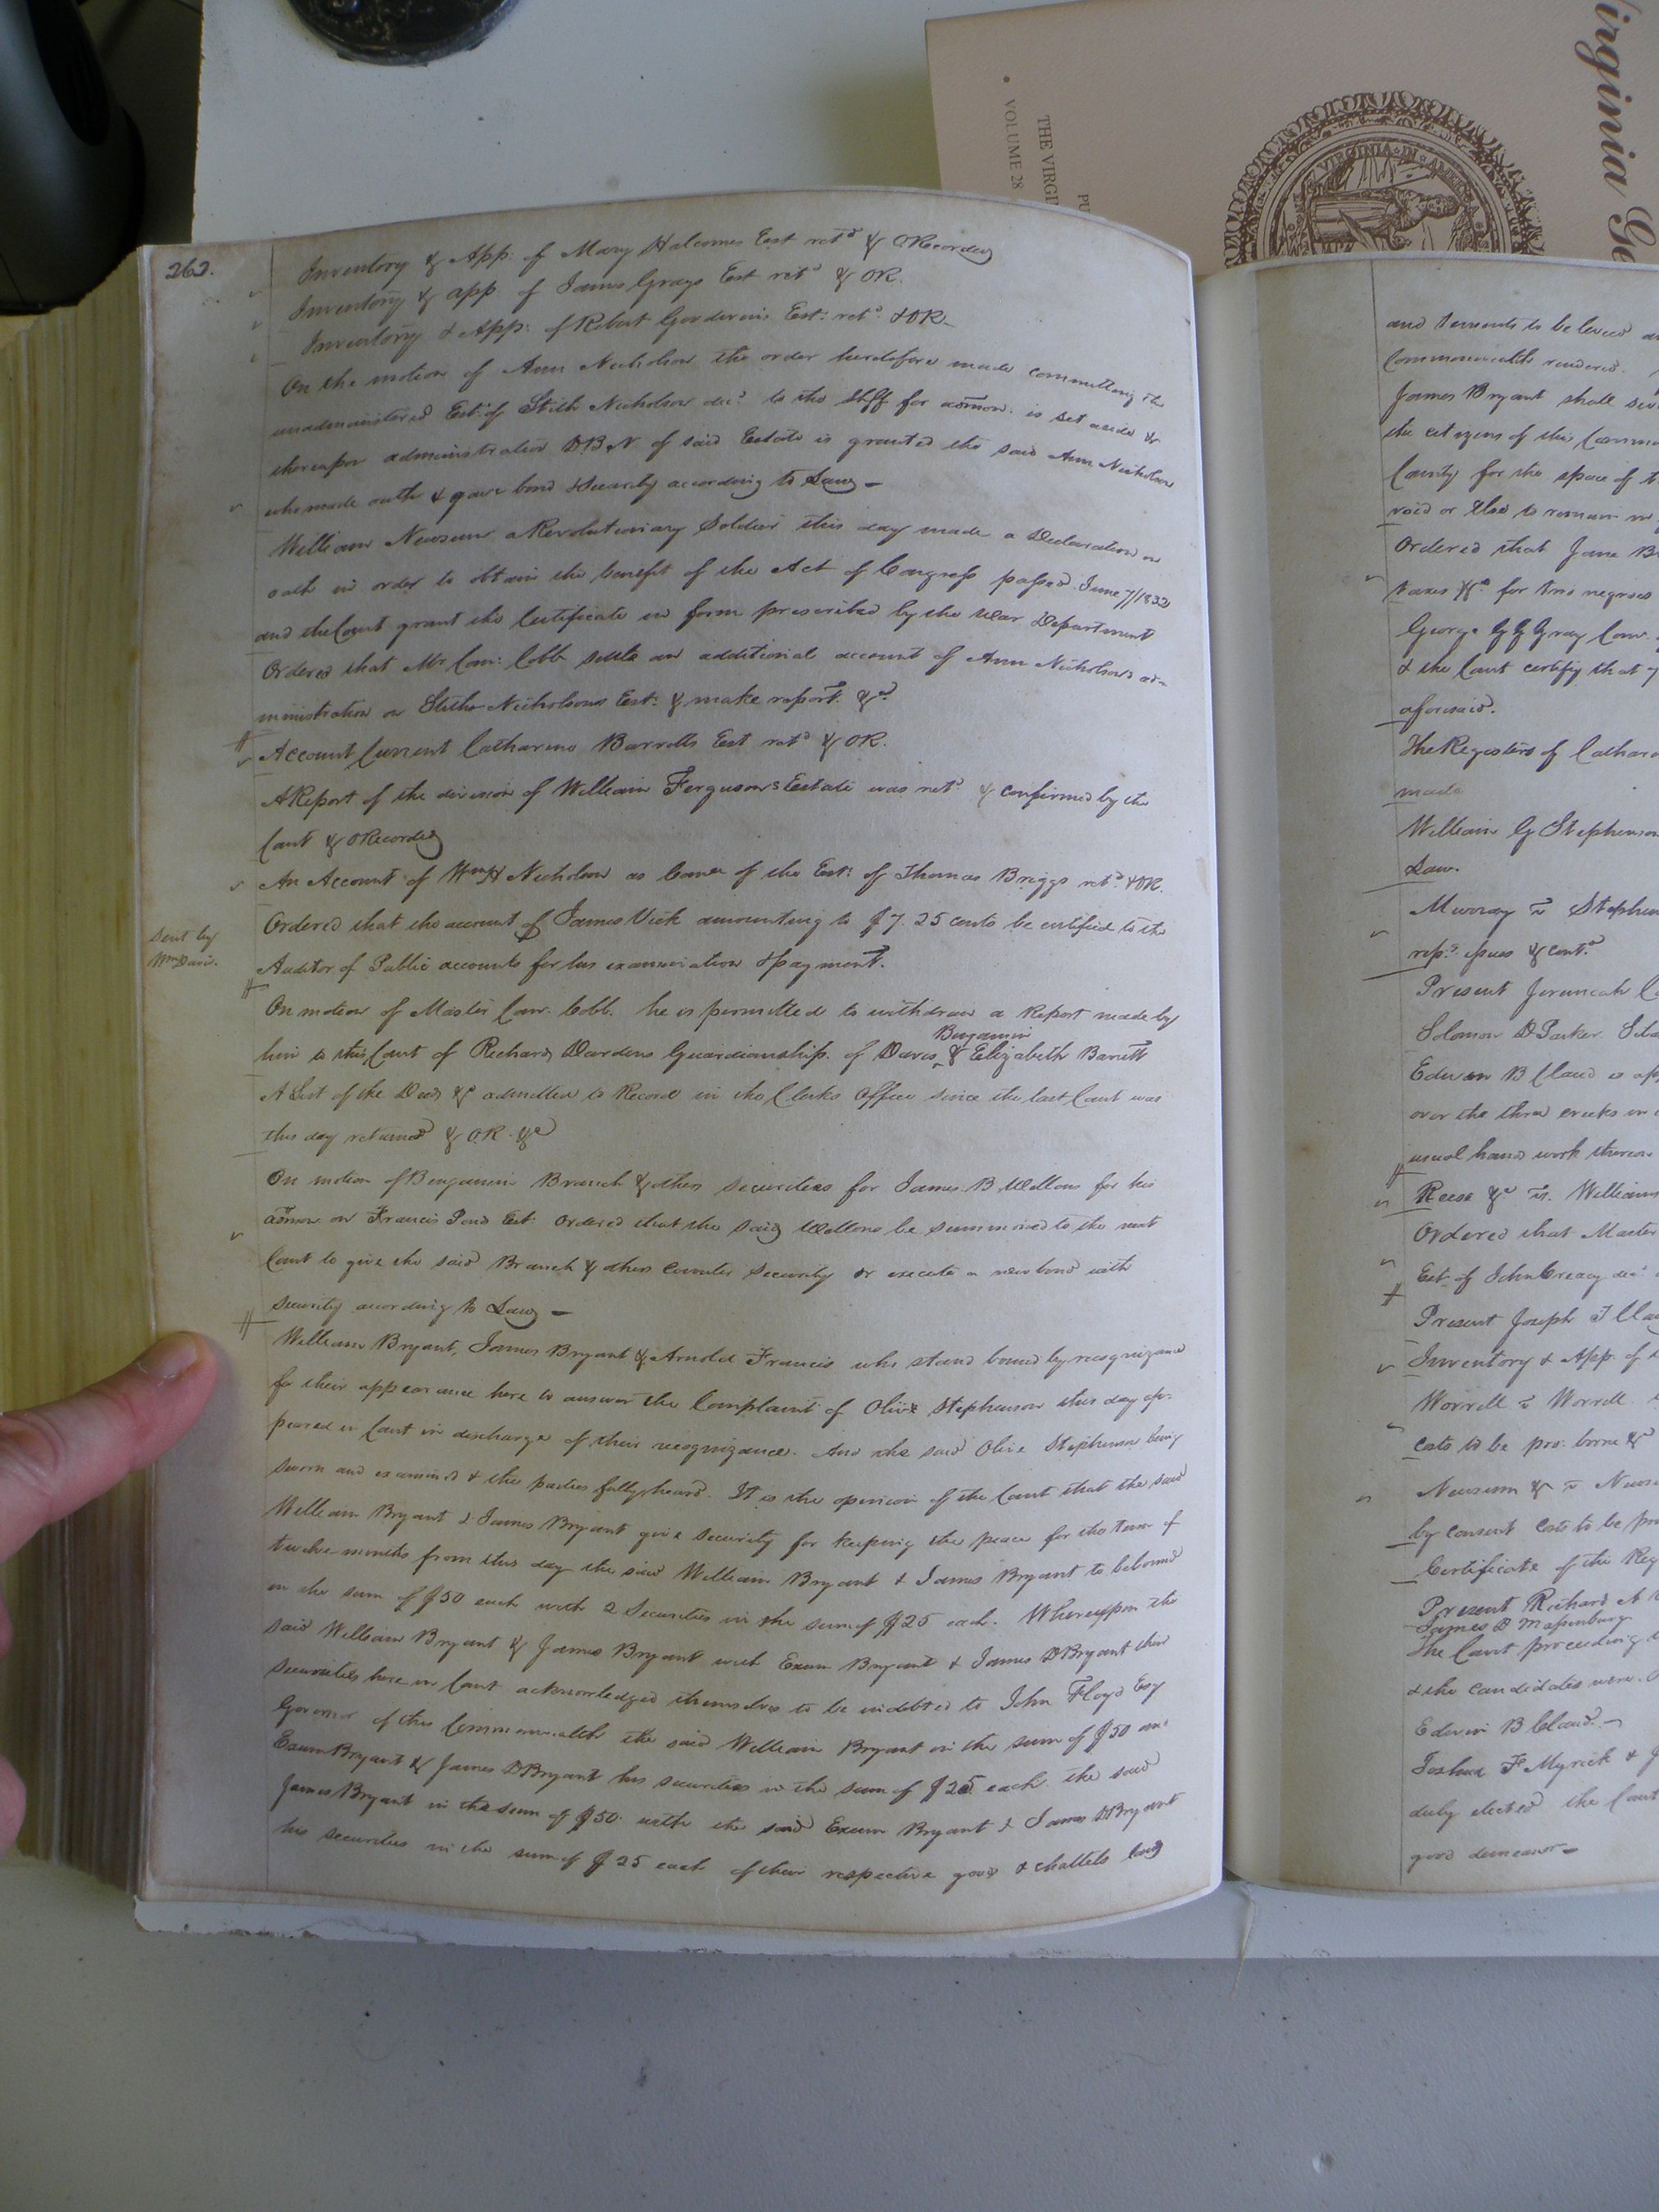 Virginia Ge
THE VIRGI
PU
• VOLUME 28
VIRGINIA · IN · A
262.
Inventory & App: of Mary Halcomes Est retd & ORecorded
Inventory & app. of James Grays Est retd & OR.
Inventory & App: of Robert Gordwins Est: retd & OR—
On the motion of Ann Nicholson the order heretofore made committing the
unadministered Est: of Stith Nicholson decd to the Shff for admon: is set aside &
thereupon administration DBN of said Estate is granted the said Ann Nicholson
who made oath & gave bond & Security according to Law —
William Newsum a Revolutionary Soldier this day made a Declaration on
oath in order to obtain the benefit of the Act of Congress passed June 7//1832
and the Court grant the Certificate in form prescribed by the War Department
Ordered that Mr Com: Cobb settle an additional account of Ann Nicholsons ad-
ministration on Stith Nicholsons Est: & make report. &c
Account Current Catharine Barretts Est retd & OR.
A Report of the division of William Fergusons Estate was retd & confirmed by the
Court & ORecorded
An Account of Wm H Nicholson as of the Est: of Thomas Briggs retd & OR.
Sent by
Wm Davis.
Ordered that the account of James Vick amounting to $7.25 cents be certified to the
Auditor of Public accounts for his examination & payment.
On motion of Master Com. Cobb. he is permitted to withdraw a Report made by
Benjamin
him to this Court of Richard Dardens Guardianship. of Davis, & Elizabeth Barrett
A List of the Deeds &c admitted to Record in the Clerks Office since the last Court was
this day returned & O.R. &c
On motion of Benjamin Branch & others securities for James B Wellons for his
admon on Francis Pond Est: Ordered that the said Wellons be summoned to the next
Court to give the said Branch & others Counter Security or execute a new bond with
security according to Law —
William Bryant, James Bryant & Arnold Francis who stand bound by recognizance
for their appearance here to answer the Complaint of Olive Stephenson this day ap-
peared in Court in discharge of their recognizance. And the said Olive Stephenson being
sworn and examined & the parties fully heard. It is the opinion of the Court that the said
William Bryant & James Bryant give security for keeping the peace for the Term of
twelve months from this day the said William Bryant & James Bryant to be bound
in the sum of $50 each with 2 Securities in the sum of $25 each. Whereupon the
said William Bryant & James Bryant with Exum Bryant & James D Bryant their
securities here in Court acknowledged themselves to be indebted to John Floyd Esq
Governor of this Commonwealth the said William Bryant in the sum of $50 and
Exum Bryant & James D Bryant his securities in the sum of $25 each. the said
James Bryant in the sum of $50. with the said Exum Bryant & James D Bryant
his securities in the sum of $25 each of their respective goods & chattels land
and tenements to be levied
Commonwealth rendered.
James Bryant shall
the citizens of this Comm
County for the space of
void or Else to remain in
Ordered that Jane B
taxes &c for two negroes
George Gray Com.
& the Court certify that
aforesaid.
The Registers of Cathar
made
William G Stephenson
Law.
Murray vs Stephen
issues & contd
Present Jeremiah C
Solomon D Parker
Edwin B Claud is ap
over the three creeks in
usual hands work thereon
Reese &c vs. Williams
Ordered that Master
Est. of John Creacy decd
Present Joseph T Cla
Inventory & App. of
Worrell vs Worrell
costs to be
Newsum & vs News
by consent Costs to be
Certificate of the Reg
Present Richard A
James D Massenburg
The Court proceeding
& the candidates were
Edwin B Claud. —
Joshua F Myrick & J
duly elected the Court
good demeanor —